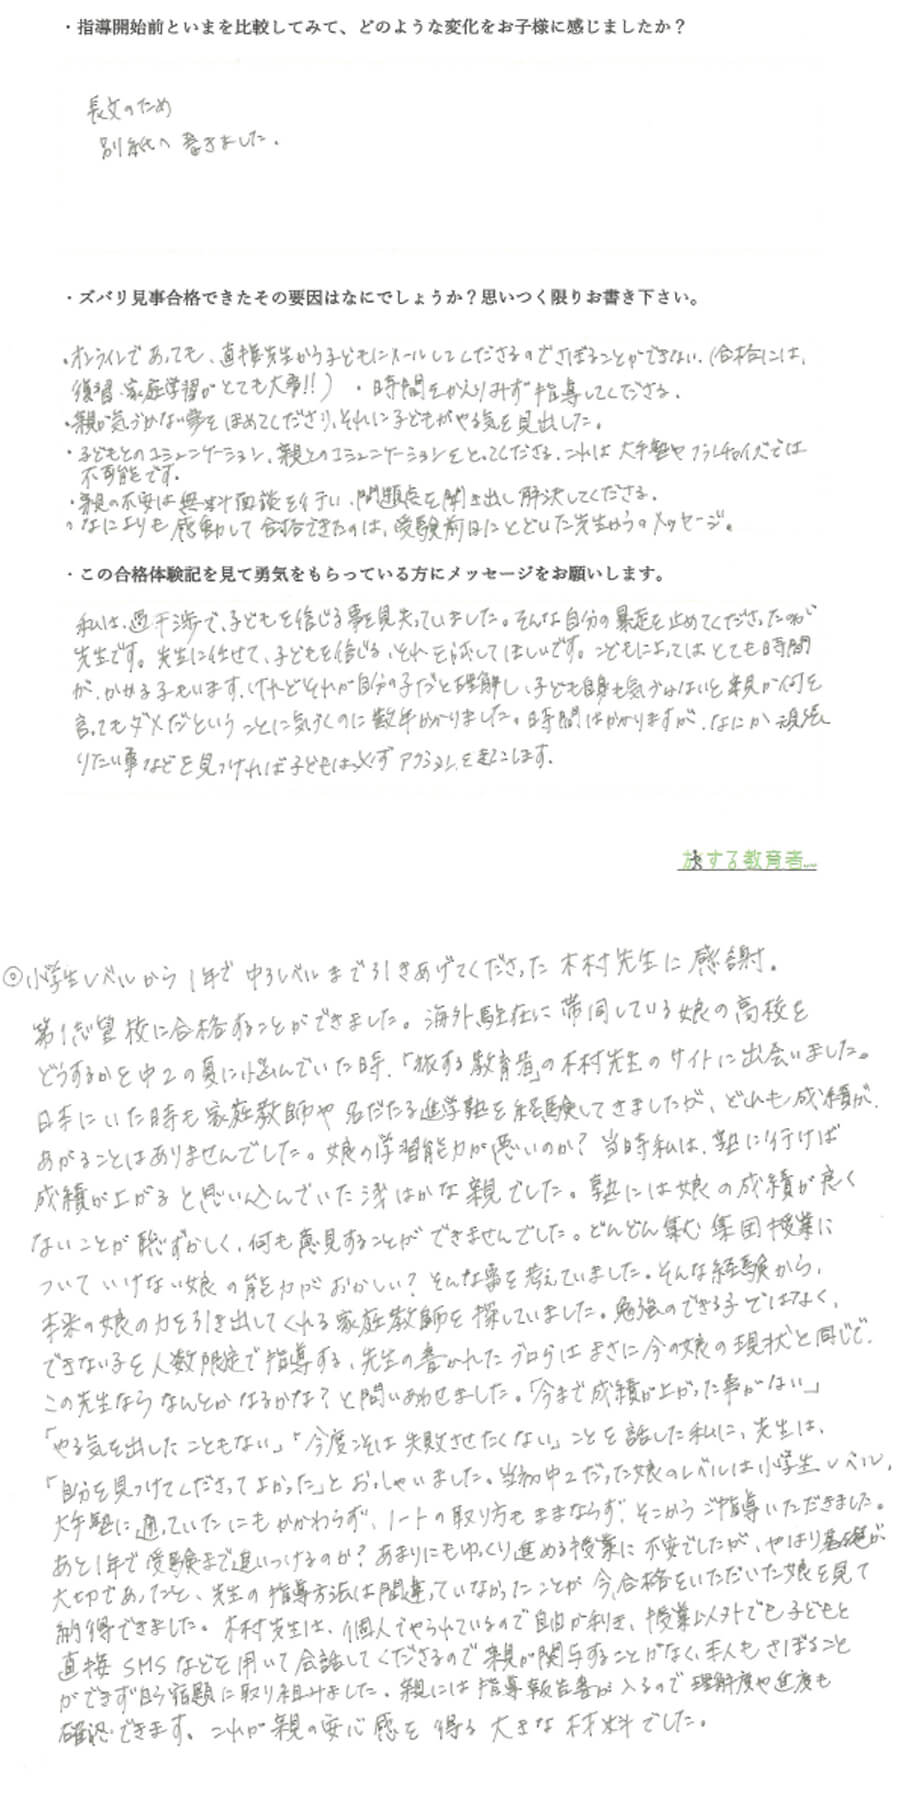 ・指導開始前といまを比較してみて、どのような変化をお子様に感じましたか？
長文のため
別紙へ書きました.
・ズバリ見事合格できたその要因はなにでしょうか？思いつく限りお書き下さい。
・オンラインであっても、直接先生から子どもにメールしてくださるのでさぼることができない.(合格には、
復習.家庭学習がとても大事!!) ・時間をかえりみず指導してくださる.
・親が気づかない事をほめてくださり、それに子どもがやる気を見出した。
・子どもとのコミュニケーション、親とのコミュニケーションをとってくださる.これは大手塾やフランチャイズでは
不可能です.
・親の不安は無料面談を行い、問題点を聞き出し解決してくださる.
・なによりも感動して合格できたのは、受験前日にとどいた先生からのメッセージ。
・この合格体験記を見て勇気をもらっている方にメッセージをお願いします。
私は、過干渉で、子どもを信じる事を見失っていました。そんな自分の暴走を止めてくださったのが
先生です。先生に任せて、子どもを信じる、それを試してほしいです。こどもによってはとても時間
が、かかる子もいます、けれどそれが自分の子だと理解し、子ども自身も気づかないと親が何を
言ってもダメだということに気づくのに数年かかりました。時間はかかりますが、なにか頑張
りたい事などを見つければ子どもは必ずアクションを起こします.
旅する教育者
◎小学生レベルから1年で中3レベルまで引きあげてくださった木村先生に感謝.
第1志望校に合格することができました。海外駐在に帯同している娘の高校を
どうするかを中2の夏に悩んでいた時、「旅する教育者」の木村先生のサイトに出会いました。
日本にいた時も家庭教師や名だたる進学塾を経験してきましたが、どれも成績が、
あがることはありませんでした。娘の学習能力が悪いのか?当時私は、塾に行けば
成績が上がると思い込んでいた浅はかな親でした。塾には娘の成績が良く
ないことが恥ずかしく、何も意見することができませんでした。どんどん進む集団授業に
ついていけない娘の能力がおかしい?そんな事を考えていました。そんな経験から、
本来の娘の力を引き出してくれる家庭教師を探していました。勉強のできる子ではなく、
できない子を人数限定で指導する、先生の書かれたブログはまさに今の娘の現状と同じで、
この先生ならなんとかなるかな?と問いあわせました。「今まで成績が上がった事がない」
「やる気を出したこともない」「今度こそは失敗させたくない」ことを話した私に、先生は、
「自分を見つけてくださってよかった」とおっしゃいました。当初中2だった娘のレベルは小学生レベル、
大手塾に通っていたにもかかわらず、ノートの取り方もままならず、そこからご指導いただきました。
あと1年で受験まで追いつけるのか?あまりにもゆっくり進める授業に不安でしたが、やはり基礎が
大切であったと、先生の指導方法は間違っていなかったことが今、合格をいただいた娘を見て
納得できました。木村先生は、個人でやられているので自由が利き、授業以外でも子どもと
直接SMSなどを用いて会話してくださるので親が関与することがなく、本人もさぼること
ができず自ら宿題に取り組みました.親には指導報告書が入るので理解度や進度も
確認できます。これが親の安心感を得る大きな材料でした。